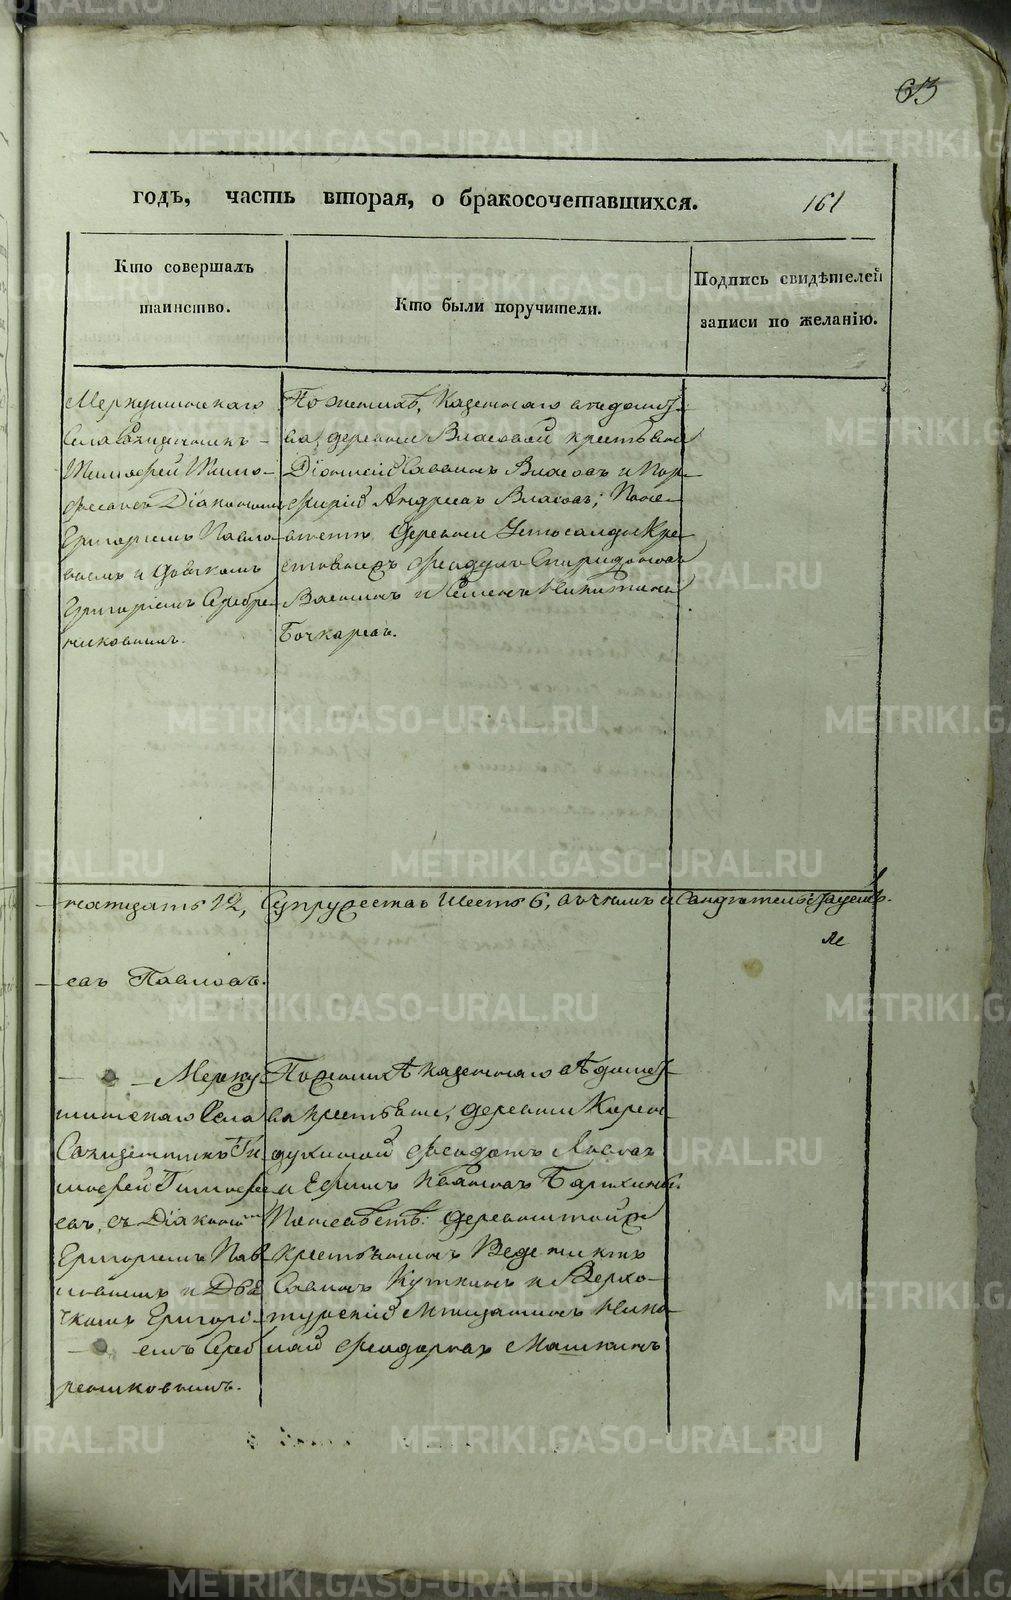 63
годъ, часть вторая, о бракосочетавшихся. 161
Кто совершалъ
таинство.
Кто были поручители.
Подпись свидѣтелей
записи по желанію.
Меркушинскаго
Села Священникъ
Тимофей Тимо-
фѣевъ съ Діакономъ
Григоріемъ Павло-
вымъ и Дьячкомъ
Григоріемъ Серебре-
никовымъ.
По женихѣ, Казеннаго вѣдомст-
ва, деревни Власовой крестьяна
Діонисій Саввинъ Власовъ и Пор-
фирій Андреевъ Власовъ; По не-
вѣстѣ деревни Устосалды Кре-
стьянинъ Феодулъ Спиридоновъ
и Семенъ Никитинъ
Бочкаревъ.
надцать 12, Супружества Шесть 6, въ чемъ и Свидѣтельствуемъ.
евъ Павловъ.
Мерку
шинскаго Села
Священникъ Ти
мофей Тимофе
евъ, съ Діакономъ
Григоріемъ Пав
ловымъ и Дья
чкомъ Григорі-
емъ Сереб
рениковымъ.
По женихѣ казеннаго вѣдомст-
ва крестьяне, деревни Карело-
Феодотъ
и Ефимъ Ивановъ
По невѣстѣ: деревни
крестьянинъ
Саввинъ и Верхо-
турскій Мѣщанинъ Нико-
лай Феодоровъ Машкинъ
METRIKI.GASO-URAL.RU